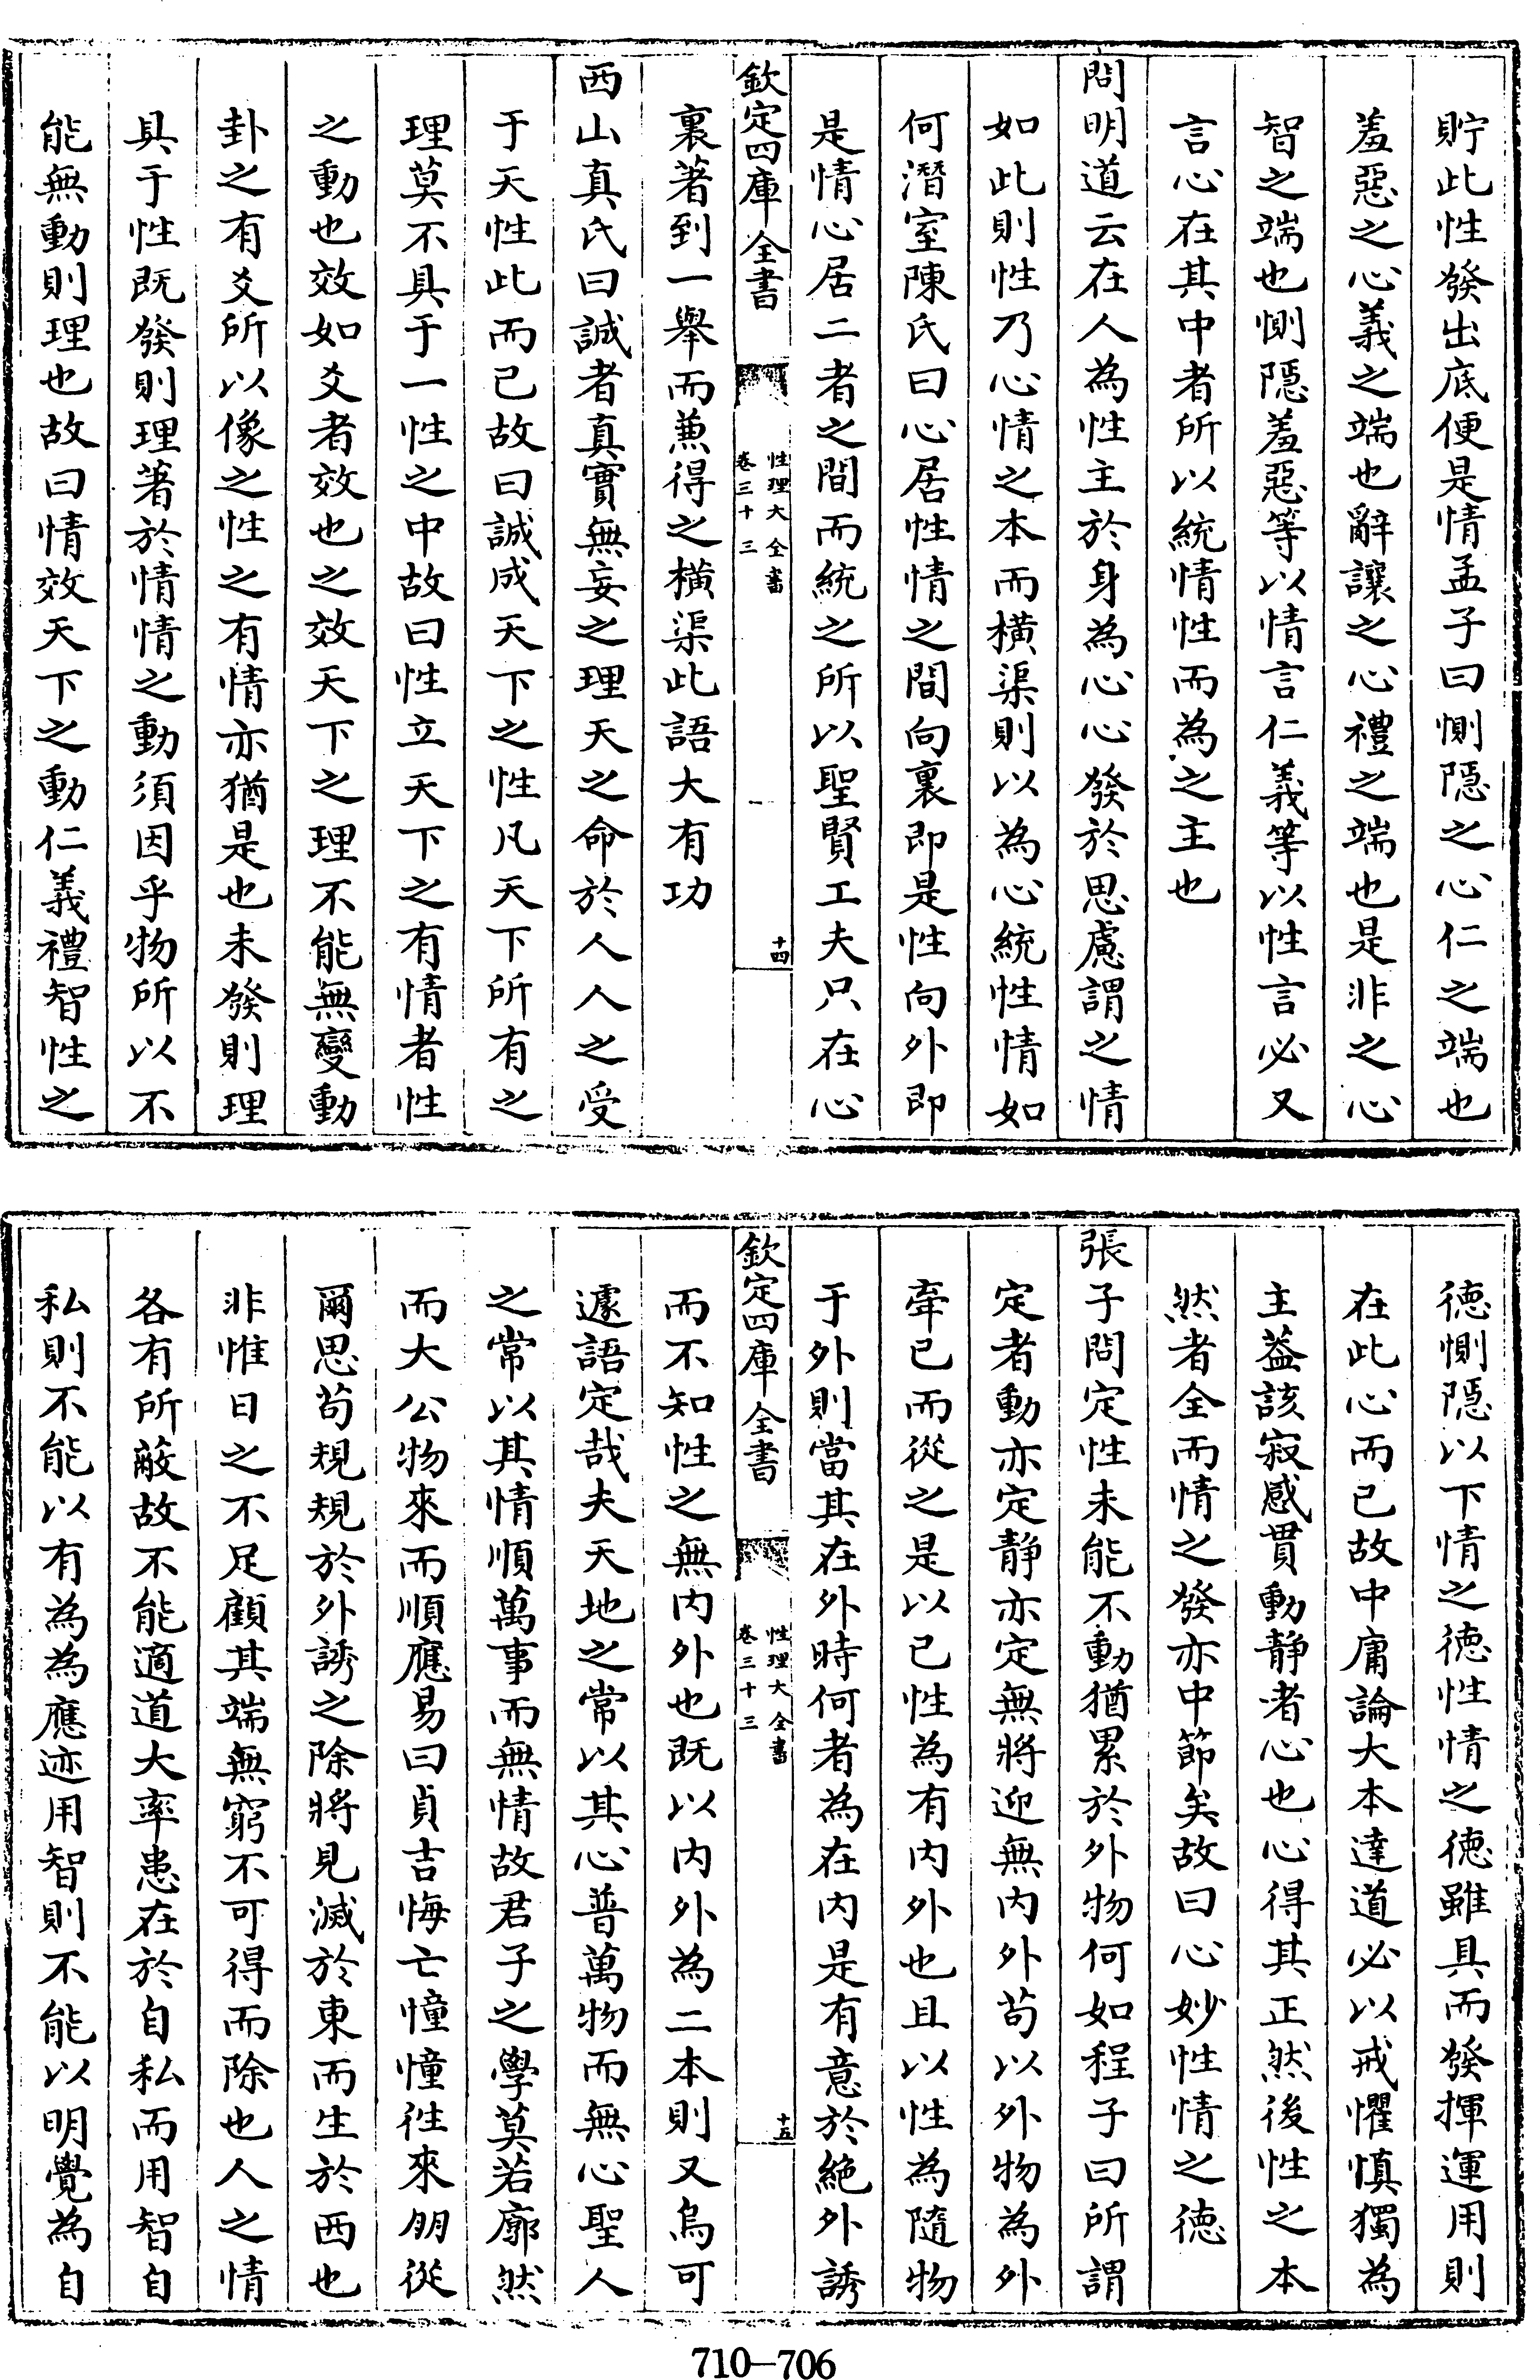 貯此性發出底便是情孟子曰惻隠之心仁之端也
羞惡之心義之端也辭讓之心禮之端也是非之心
智之端也惻隠羞惡等以情言仁義等以性言必又
言心在其中者所以統情性而為之主也
問明道云在人為性主於身為心心發於思慮謂之情
如此則性乃心情之本而横渠則以為心統性情如
何潛室陳氏曰心居性情之間向裏即是性向外即
是情心居二者之間而統之所以聖賢工夫只在心
欽定四庫全書
性理大全書
卷三十三
十四
裏著到一舉而兼得之横渠此語大有功
西山真氏曰誠者真實無妄之理天之命於人人之受
于天性此而已故曰誠成天下之性凡天下所有之
理莫不具于一性之中故曰性立天下之有情者性
之動也效如爻者效也之效天下之理不能無變動
卦之有爻所以像之性之有情亦猶是也未發則理
具于性既發則理著於情情之動須因乎物所以不
能無動則理也故曰情效天下之動仁義禮智性之
德惻隠以下情之德性情之德雖具而發揮運用則
在此心而已故中庸論大本達道必以戒懼慎獨為
主蓋該寂感貫動静者心也心得其正然後性之本
然者全而情之發亦中節矣故曰心妙性情之德
張子問定性未能不動猶累於外物何如程子曰所謂
定者動亦定静亦定無將迎無内外苟以外物為外
牽已而從之是以已性為有内外也且以性為隨物
于外則當其在外時何者為在内是有意於絶外誘
欽定四庫全書
性理大全書
卷三十三
十五
而不知性之無内外也既以内外為二本則又烏可
遽語定哉夫天地之常以其心普萬物而無心聖人
之常以其情順萬事而無情故君子之學莫若廓然
而大公物來而順應易曰貞吉悔亡憧憧徃來朋從
爾思苟規規於外誘之除將見滅於東而生於西也
非惟日之不足顧其端無窮不可得而除也人之情
各有所蔽故不能適道大率患在於自私而用智自
私則不能以有為為應迹用智則不能以明覺為自
710—706